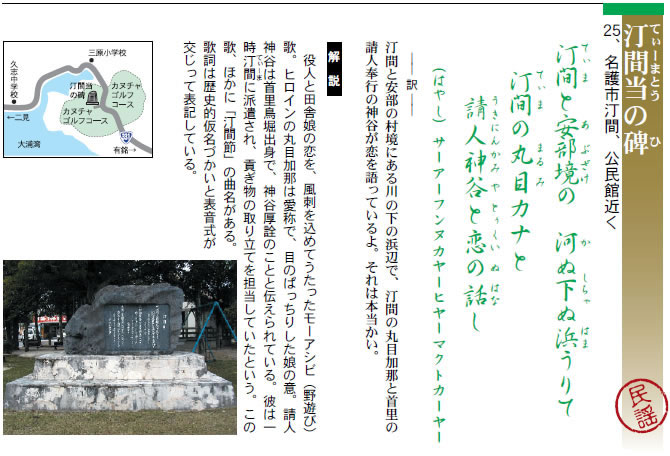 てぃーまとう ひ
汀間当の碑
25、名護市汀間、公民館近く
てぃま あぶざけ か しちゃ はま
汀間と安部境の 河ぬ下ぬ浜うりて
てぃま まるみ
汀間の丸目カナと
うきにんかみやとぅくいぬはな
請人神谷と恋の話し
(はやし) サーアーフンヌカヤーヒヤーマクトカーヤー
民謡
訳
汀間と安部の村境にある川の下の浜辺で、汀間の丸目加那と首里の
請人奉行の神谷が恋を語っているよ。それは本当かい。
解説
役人と田舎娘の恋を、風刺を込めてうたったモーアシビ(野遊び)
歌。ヒロインの丸目加那は愛称で、目のぱっちりした娘の意。請人
神谷は首里鳥堀出身で、神谷厚詮のことと伝えられている。彼は一
てぃーま
時汀間に派遣され、貢ぎ物の取り立てを担当していたという。この
歌、ほかに「汀間節」の曲名がある。
歌詞は歴史的仮名づかいと表音式が
交じって表記している。
三原小学校
久志中学校
汀間当の碑
カヌチャゴルフコース
カヌチャゴルフコース
←二見
大浦湾
有銘→